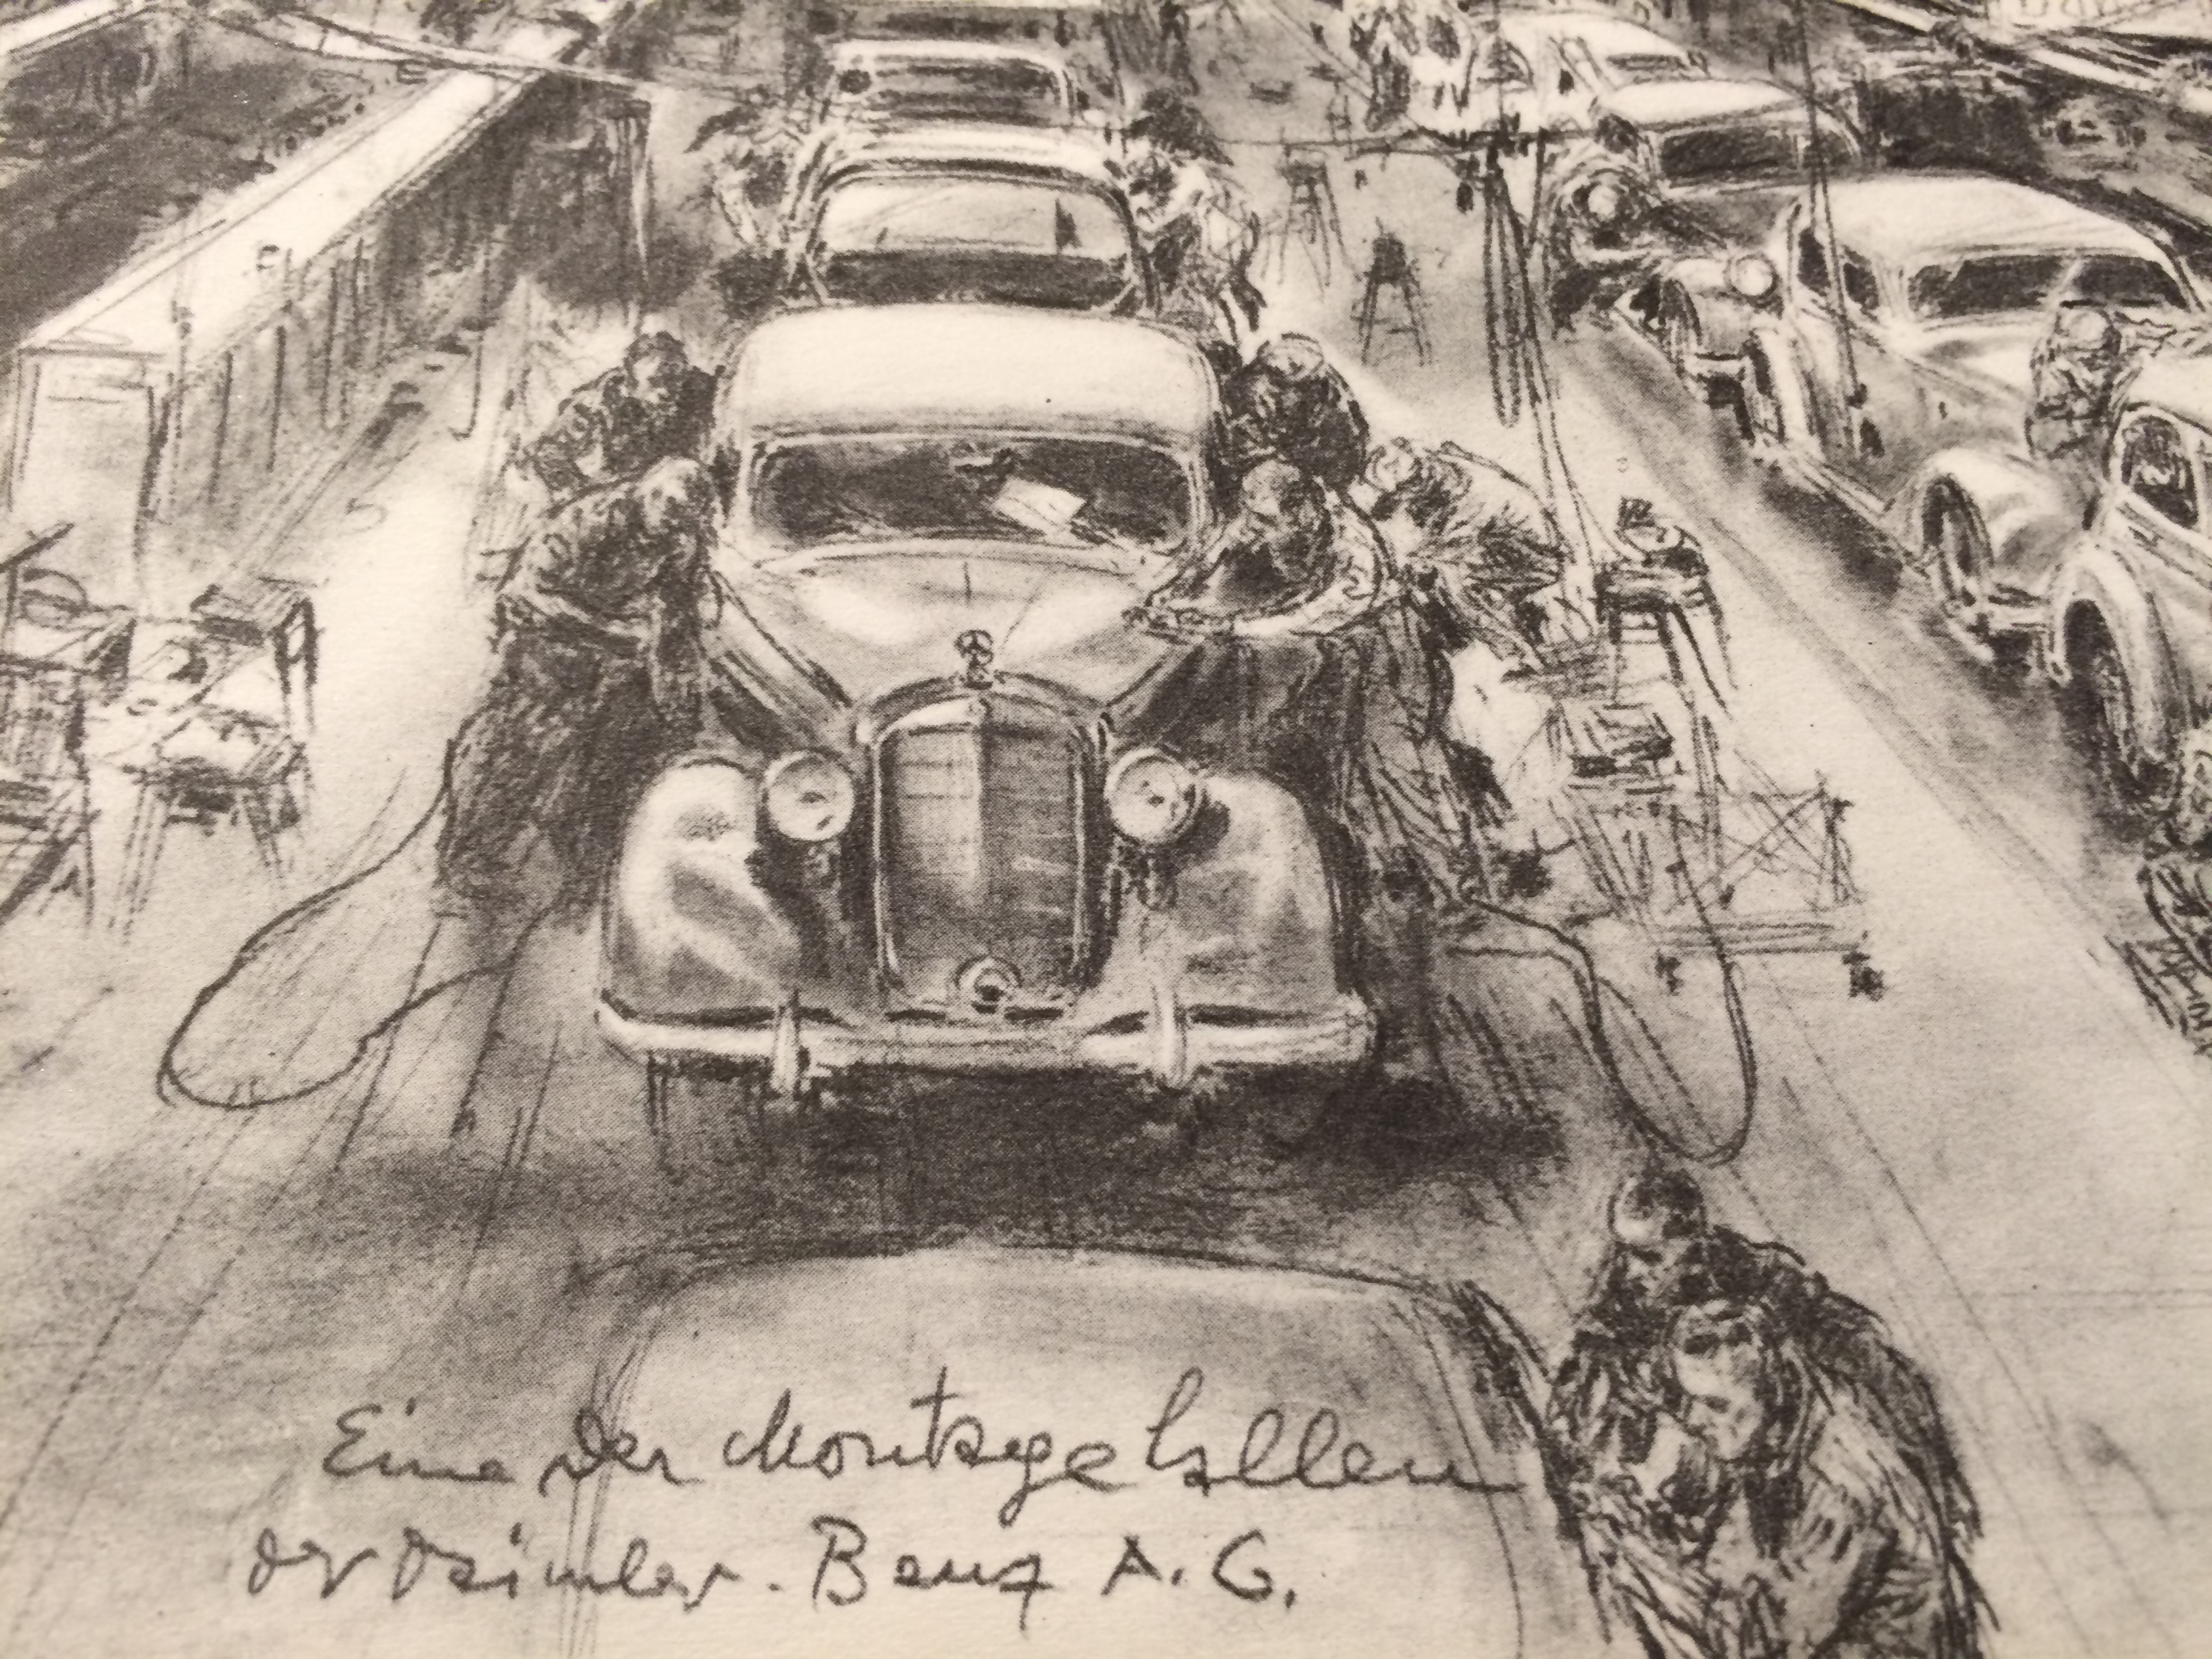 Eine der Montagehallen
der Daimler-Benz A.G.